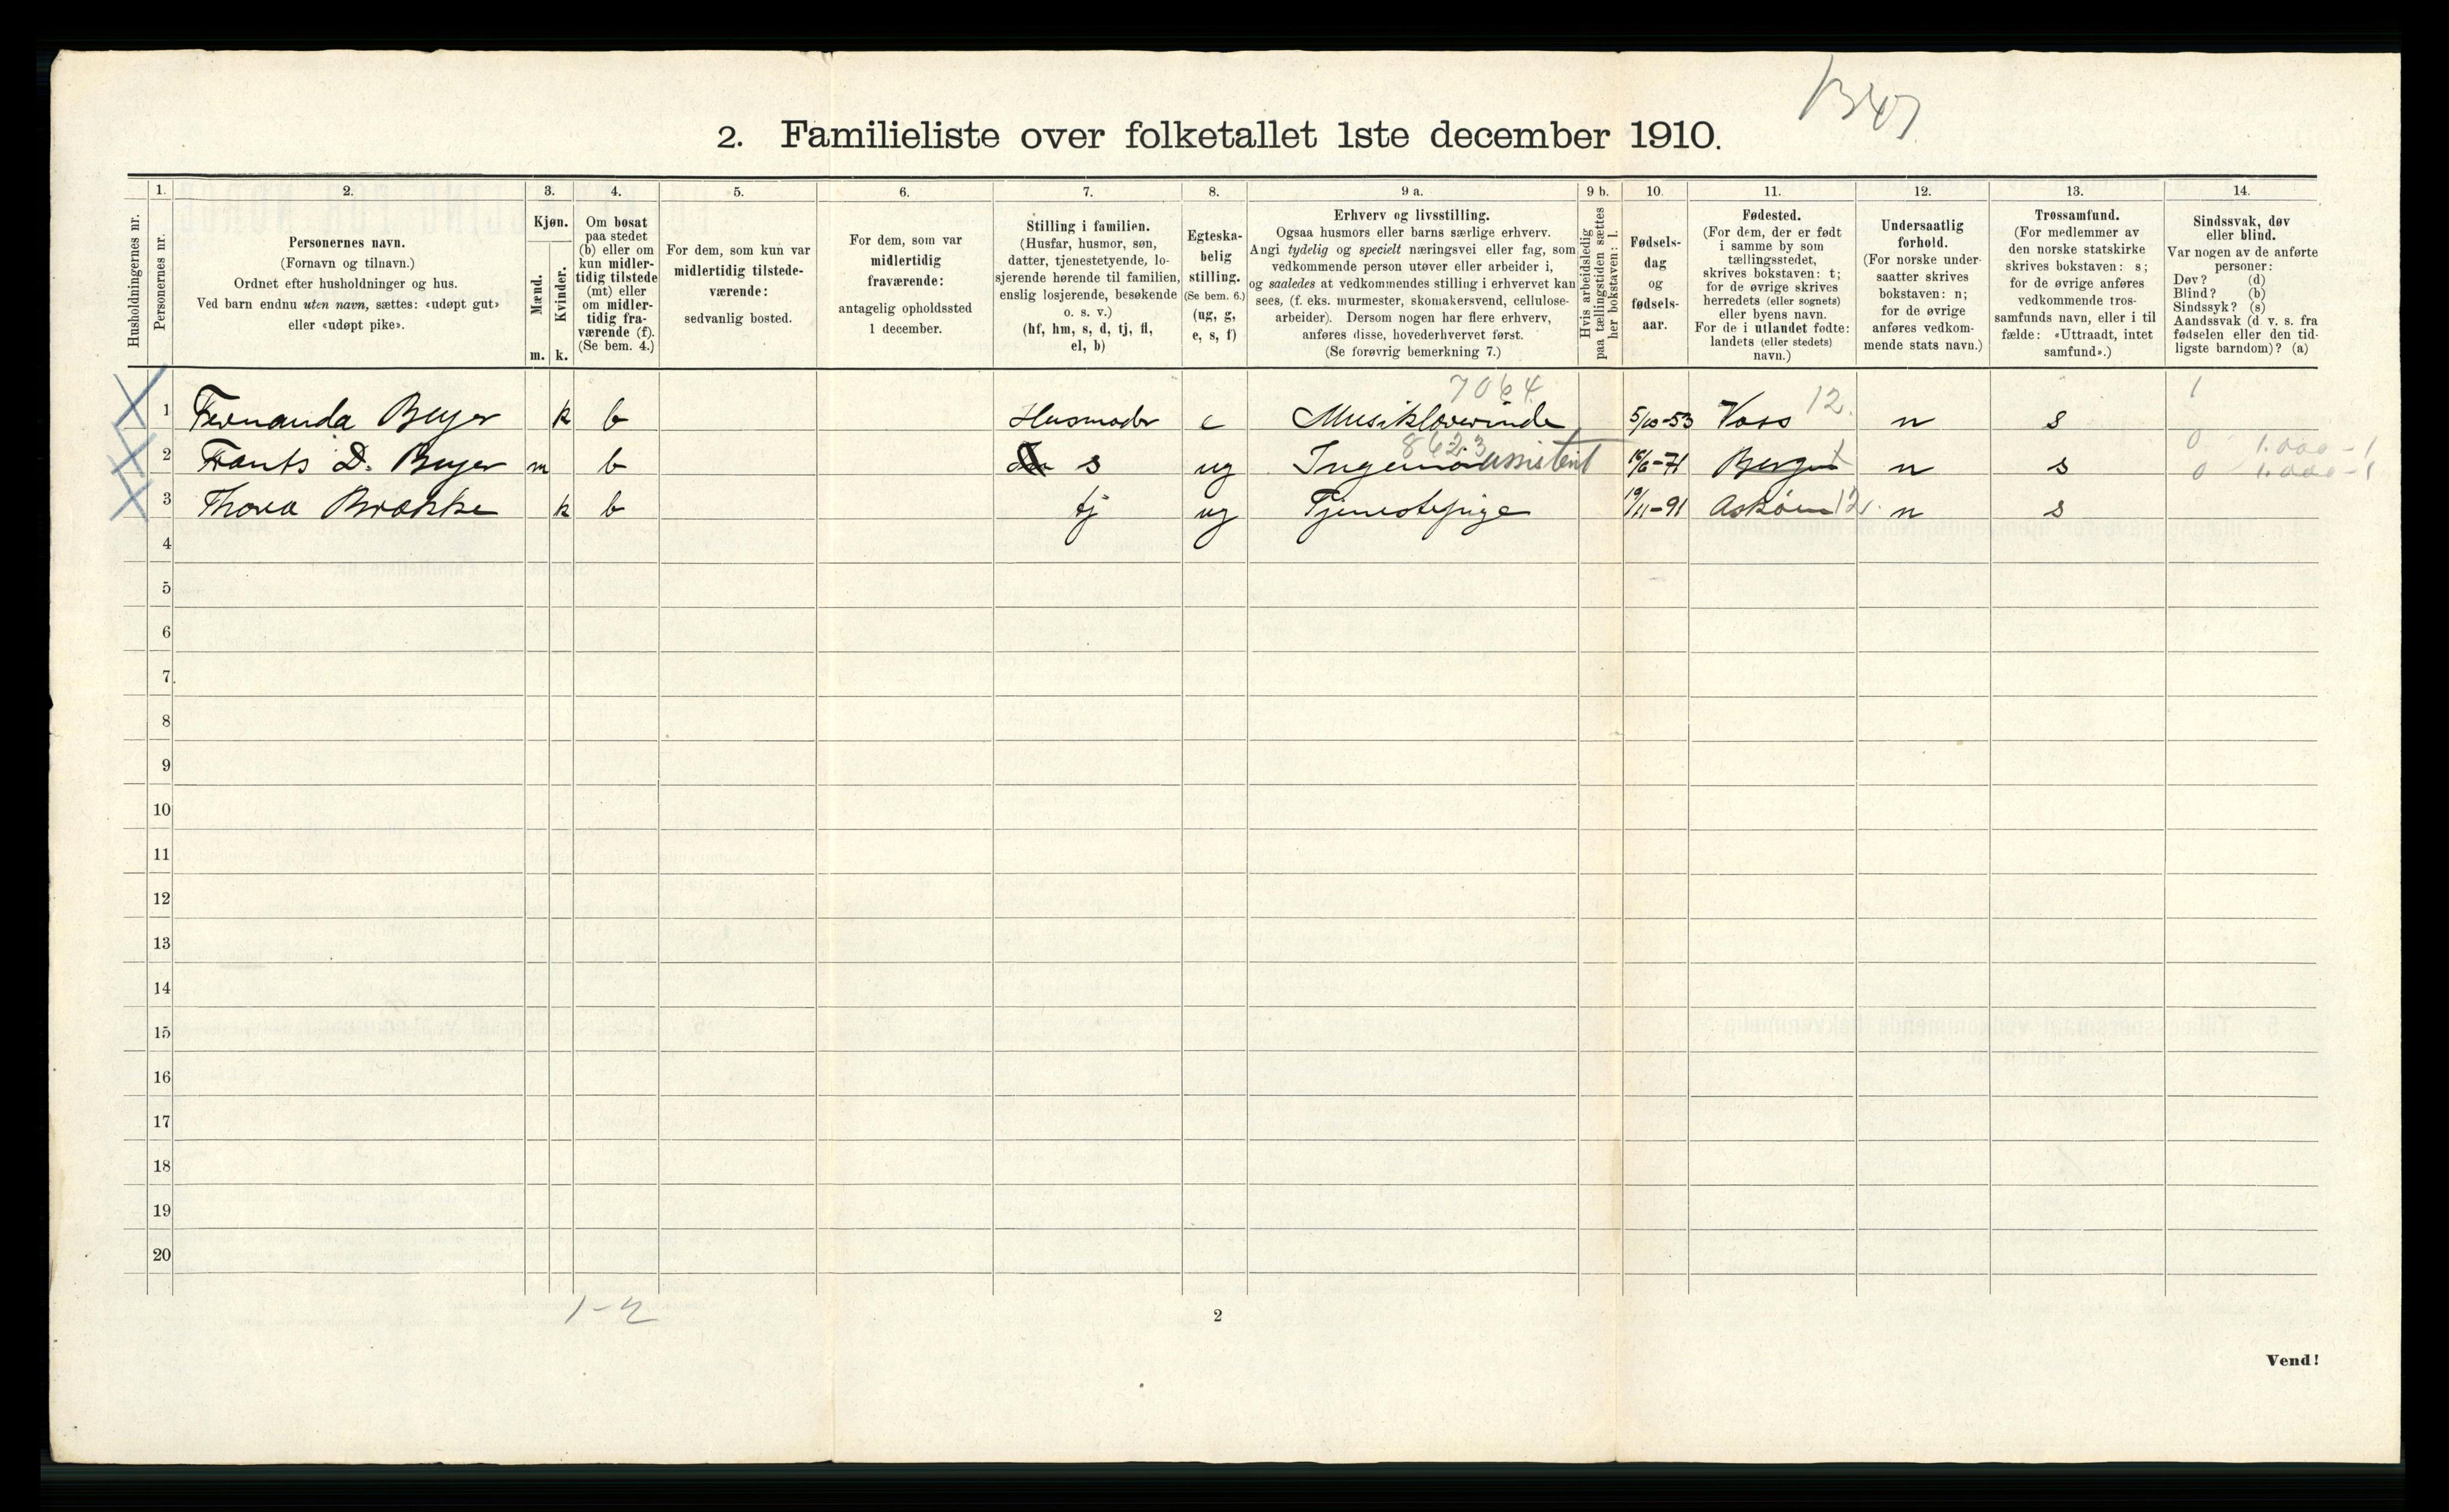 B47
2. Familieliste over folketallet 1ste december 1910.
Husholdningernes nr.
1.
Personernes nr.
2.
Personernes navn.
(Fornavn og tilnavn.)
Ordnet efter husholdninger og hus.
Ved barn endnu uten navn, sættes: «udøpt gut»
eller «udøpt pike».
3.
Kjøn.
Mænd.
Kvinder.
m. k.
4.
Om bosat
paa stedet
(b) eller om
kun midler-
tidig tilstede
(mt) eller
om midler-
tidig fra-
værende (f).
(Se bem. 4.)
5.
For dem, som kun var
midlertidig tilstede-
værende:
sedvanlig bosted.
6.
For dem, som var
midlertidig
fraværende:
antagelig opholdssted
1 december.
7.
Stilling i familien.
(Husfar, husmor, søn,
datter, tjenestetyende, lo-
sjerende hørende til familien,
enslig losjerende, besøkende
o. s. v.)
(hf, hm, s, d, tj, fl,
el, b)
8.
Egteska-
belig
stilling.
(Se bem. 6.)
(ug, g,
e, s, f)
9 a.
Erhverv og livsstilling.
Ogsaa husmors eller barns særlige erhverv.
Angi tydelig og specielt næringsvei eller fag, som
vedkommende person utøver eller arbeider i,
og saaledes at vedkommendes stilling i erhvervet kan
sees, (f. eks. murmester, skomakersvend, cellulose-
arbeider). Dersom nogen har flere erhverv,
anføres disse, hovederhvervet først.
(Se forøvrig bemerkning 7.)
9 b.
Hvis arbeidsledig
paa tællingstiden sættes
her bokstaven: l.
10.
Fødsels-
dag
og
fødsels-
aar.
11.
Fødested.
(For dem, der er født
i samme by som
tællingsstedet,
skrives bokstaven: t;
for de øvrige skrives
herredets (eller sognets)
eller byens navn.
For de i utlandet fødte:
landets (eller stedets)
navn.)
12.
Undersaatlig
forhold.
(For norske under-
saatter skrives
bokstaven: n;
for de øvrige
anføres vedkom-
mende stats navn.)
13.
Trossamfund.
(For medlemmer av
den norske statskirke
skrives bokstaven: s;
for de øvrige anføres
vedkommende tros-
samfunds navn, eller i til
fælde: «Uttraadt, intet
samfund».)
14.
Sindssvak, døv
eller blind.
Var nogen av de anførte
personer:
Døv? (d)
Blind? (b)
Sindssyk? (s)
Aandssvak (d. v. s. fra
fødselen eller den tid-
ligste barndom)? (a)
7064
1 Fernanda Beyer k b Husmoder e Musiklærerinde 5/10-53 Voss 12. n s 1
8623
2 Frants D. Beyer m b s ug Ingeniørassistent 16/6-71 Bergen t n s 0 1.000-1
0 1.000-1
3 Thora Brække k b tj ug Tjenestepige 19/11-91 Askøen 12. n s
4
5
6
7
8
9
10
11
12
13
14
15
16
17
18
19
20
1-2
2
Vend!